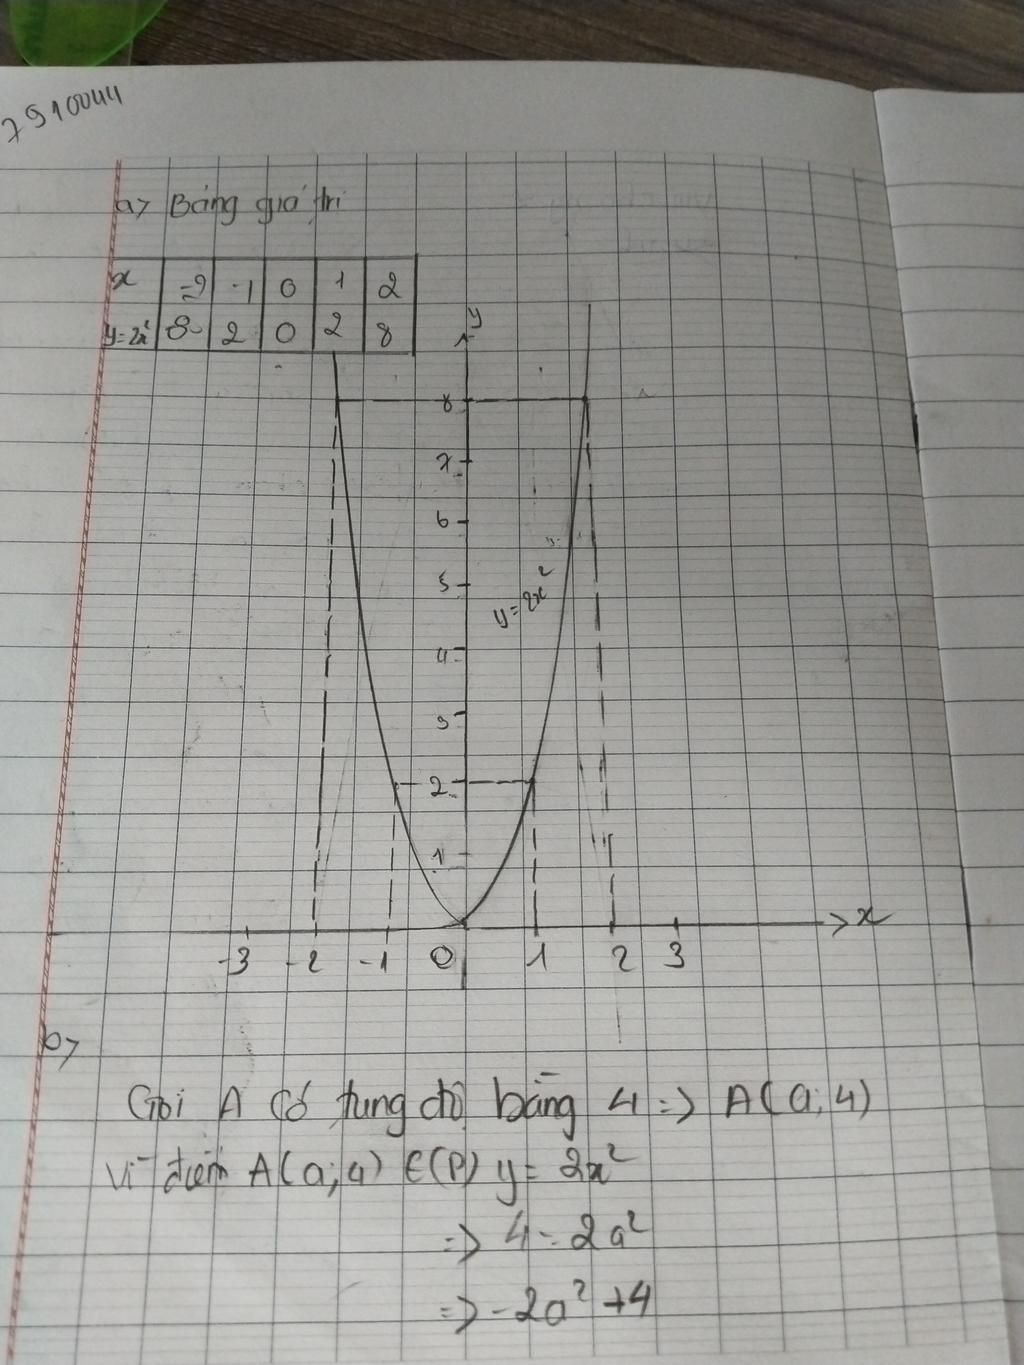 7910044
a> Bảng giá trị
x -2 -1 0 1 2
y=2x² 8 2 0 2 8
y
8
7
6
5
y=2x²
4
3
2
1
x
-3 -2 -1 0 1 2 3
b>
Gọi A có tung độ bằng 4 => A(a;4)
Vì điểm A(a;4) ∈(P) y = 2x²
=> 4 = 2a²
=> -2a² +4